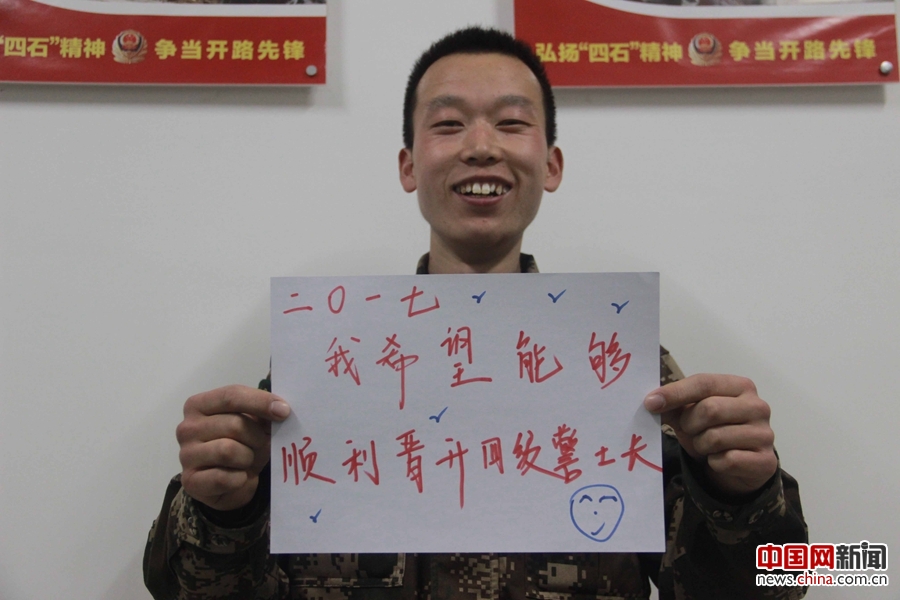 “四石”精神 争当开路先锋
弘扬“四石”精神 争当开路先锋
二〇一七
我希望能够
顺利晋升四级警士长
中国网新闻
news.china.com.cn